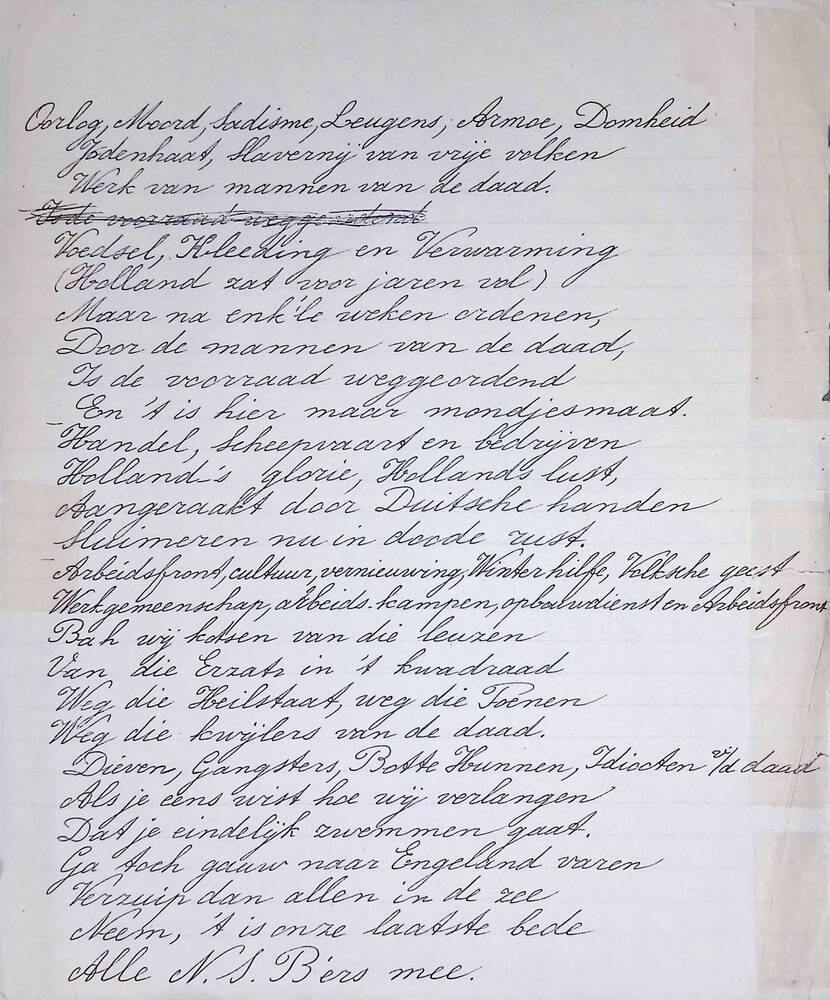 Oorlog, Moord, Sadisme, Leugens, Armoe, Domheid
Jodenhaat, Slavernij van vrije volken
Werk van mannen van de daad.
Is de voorraad weggeordend
Voedsel, Kleeding en Verwarming
(Holland zat voor jaren vol)
Maar na enk'le weken ordenen,
Door de mannen van de daad,
Is de voorraad weggeordend
En 't is hier maar mondjesmaat.
Handel, Scheepvaart en bedrijven
Holland's glorie, Hollands lust,
Aangeraakt door Duitsche handen
Sluimeren nu in doode rust.
Arbeidsfront, cultuur, vernieuwing, Winterhilfe, Volksche geest
Werkgemeenschap, arbeids-kampen, opbouwdienst en Arbeidsfront
Bah wij kotsen van die leuzen
Van die Erzats in 't kwadraad
Weg die Heilstaat, weg die Toenen
Weg die kwijlers van de daad.
Dieven, Gangsters, Botte Hunnen, Idioten v/d daad
Als je eens wist hoe wij verlangen
Dat je eindelijk zwemmen gaat.
Ga toch gauw naar Engeland varen
Verzuip dan allen in de zee
Neem, 't is onze laatste bede
Alle N.S.B'ers mee.